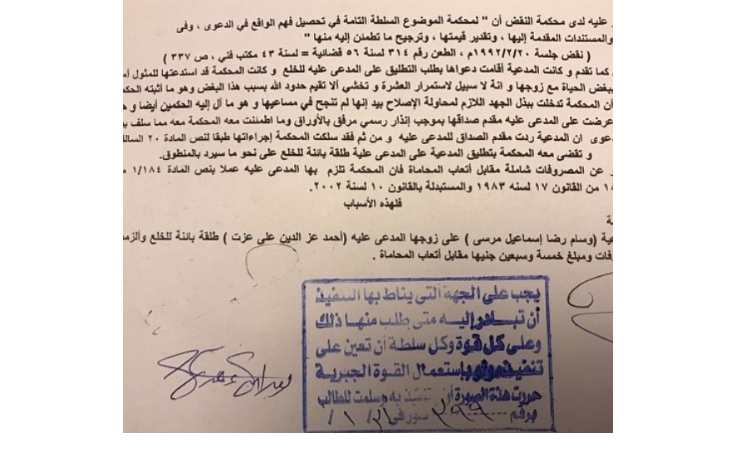 عليه لدى محكمة النقض أن " لمحكمة الموضوع السلطة التامة في تحصيل فهم الواقع في الدعوى ، وفى
والمستندات المقدمة إليها ، وتقدير قيمتها ، وترجيح ما تطمئن إليه منها "
( نقض جلسة ١٩٩٢/٢/٢٠م ، الطعن رقم ٣١٤ لسنة ٥٦ قضائية = لسنة ٤٣ مكتب فني ، ص ٣٣٧ )
كما تقدم و كانت المدعية أقامت دعواها بطلب التطليق على المدعى عليه للخلع و كانت المحكمة قد استدعتها للمثول
ببغض الحياة مع زوجها و انة لا سبيل لاستمرار العشرة و تخشي ألا تقيم حدود الله بسبب هذا البغض وهو ما أثبته
أن المحكمة تدخلت ببذل الجهد اللازم لمحاولة الإصلاح بيد إنها لم تنجح في مساعيها و هو ما آل إليه الحكمين أيضا و
عرضت على المدعى عليه مقدم صداقها بموجب إنذار رسمي مرفق بالأوراق وما اطمئنت معه المحكمة معه مما سلف
دعوى ان المدعية ردت مقدم الصداق للمدعى عليه و من ثم فقد سلكت المحكمة إجراءاتها طبقا لنص المادة ٢٠
و تقضى معه المحكمة بتطليق المدعية على المدعى علية طلقة بائنة للخلع على نحو ما سيرد بالمنطوق.
عن المصروفات شاملة مقابل أتعاب المحاماة فان المحكمة تلزم بها المدعى عليه عملا بنص المادة ١/١٨٤
من القانون ١٧ لسنه ١٩٨٣ والمستبدلة بالقانون ١٠ لسنة ٢٠٠٢.
فلهذه الأسباب
(وسام رضا إسماعيل مرسى ) على زوجها المدعى عليه (أحمد عز الدين على عزت ) طلقة بائنة للخلع
ومبلغ خمسة وسبعين جنيها مقابل أتعاب المحاماة .
يجب على الجهة التى يناط بها التنفيذ
أن تبادر إليه متى طلب منها ذلك
وعلى كل قوة وكل سلطة أن تعين على
تنفيذه ولو باستعمال القوة الجبرية
حررت هذة الصورة للتنفيذ به وسلمت للطالب
برقم